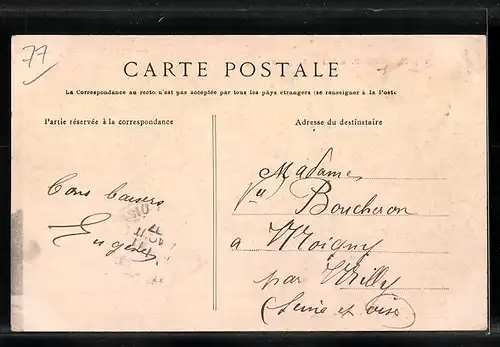 77
CARTE POSTALE
La Correspondance au recto n'est pas acceptée par tous les pays étrangers (se renseigner à la Poste
Partie réservée à la correspondance
Adresse du destinataire
Bons baisers
Madame
Vve Boucheron
a Moigny
par Milly
(Seine et oise)